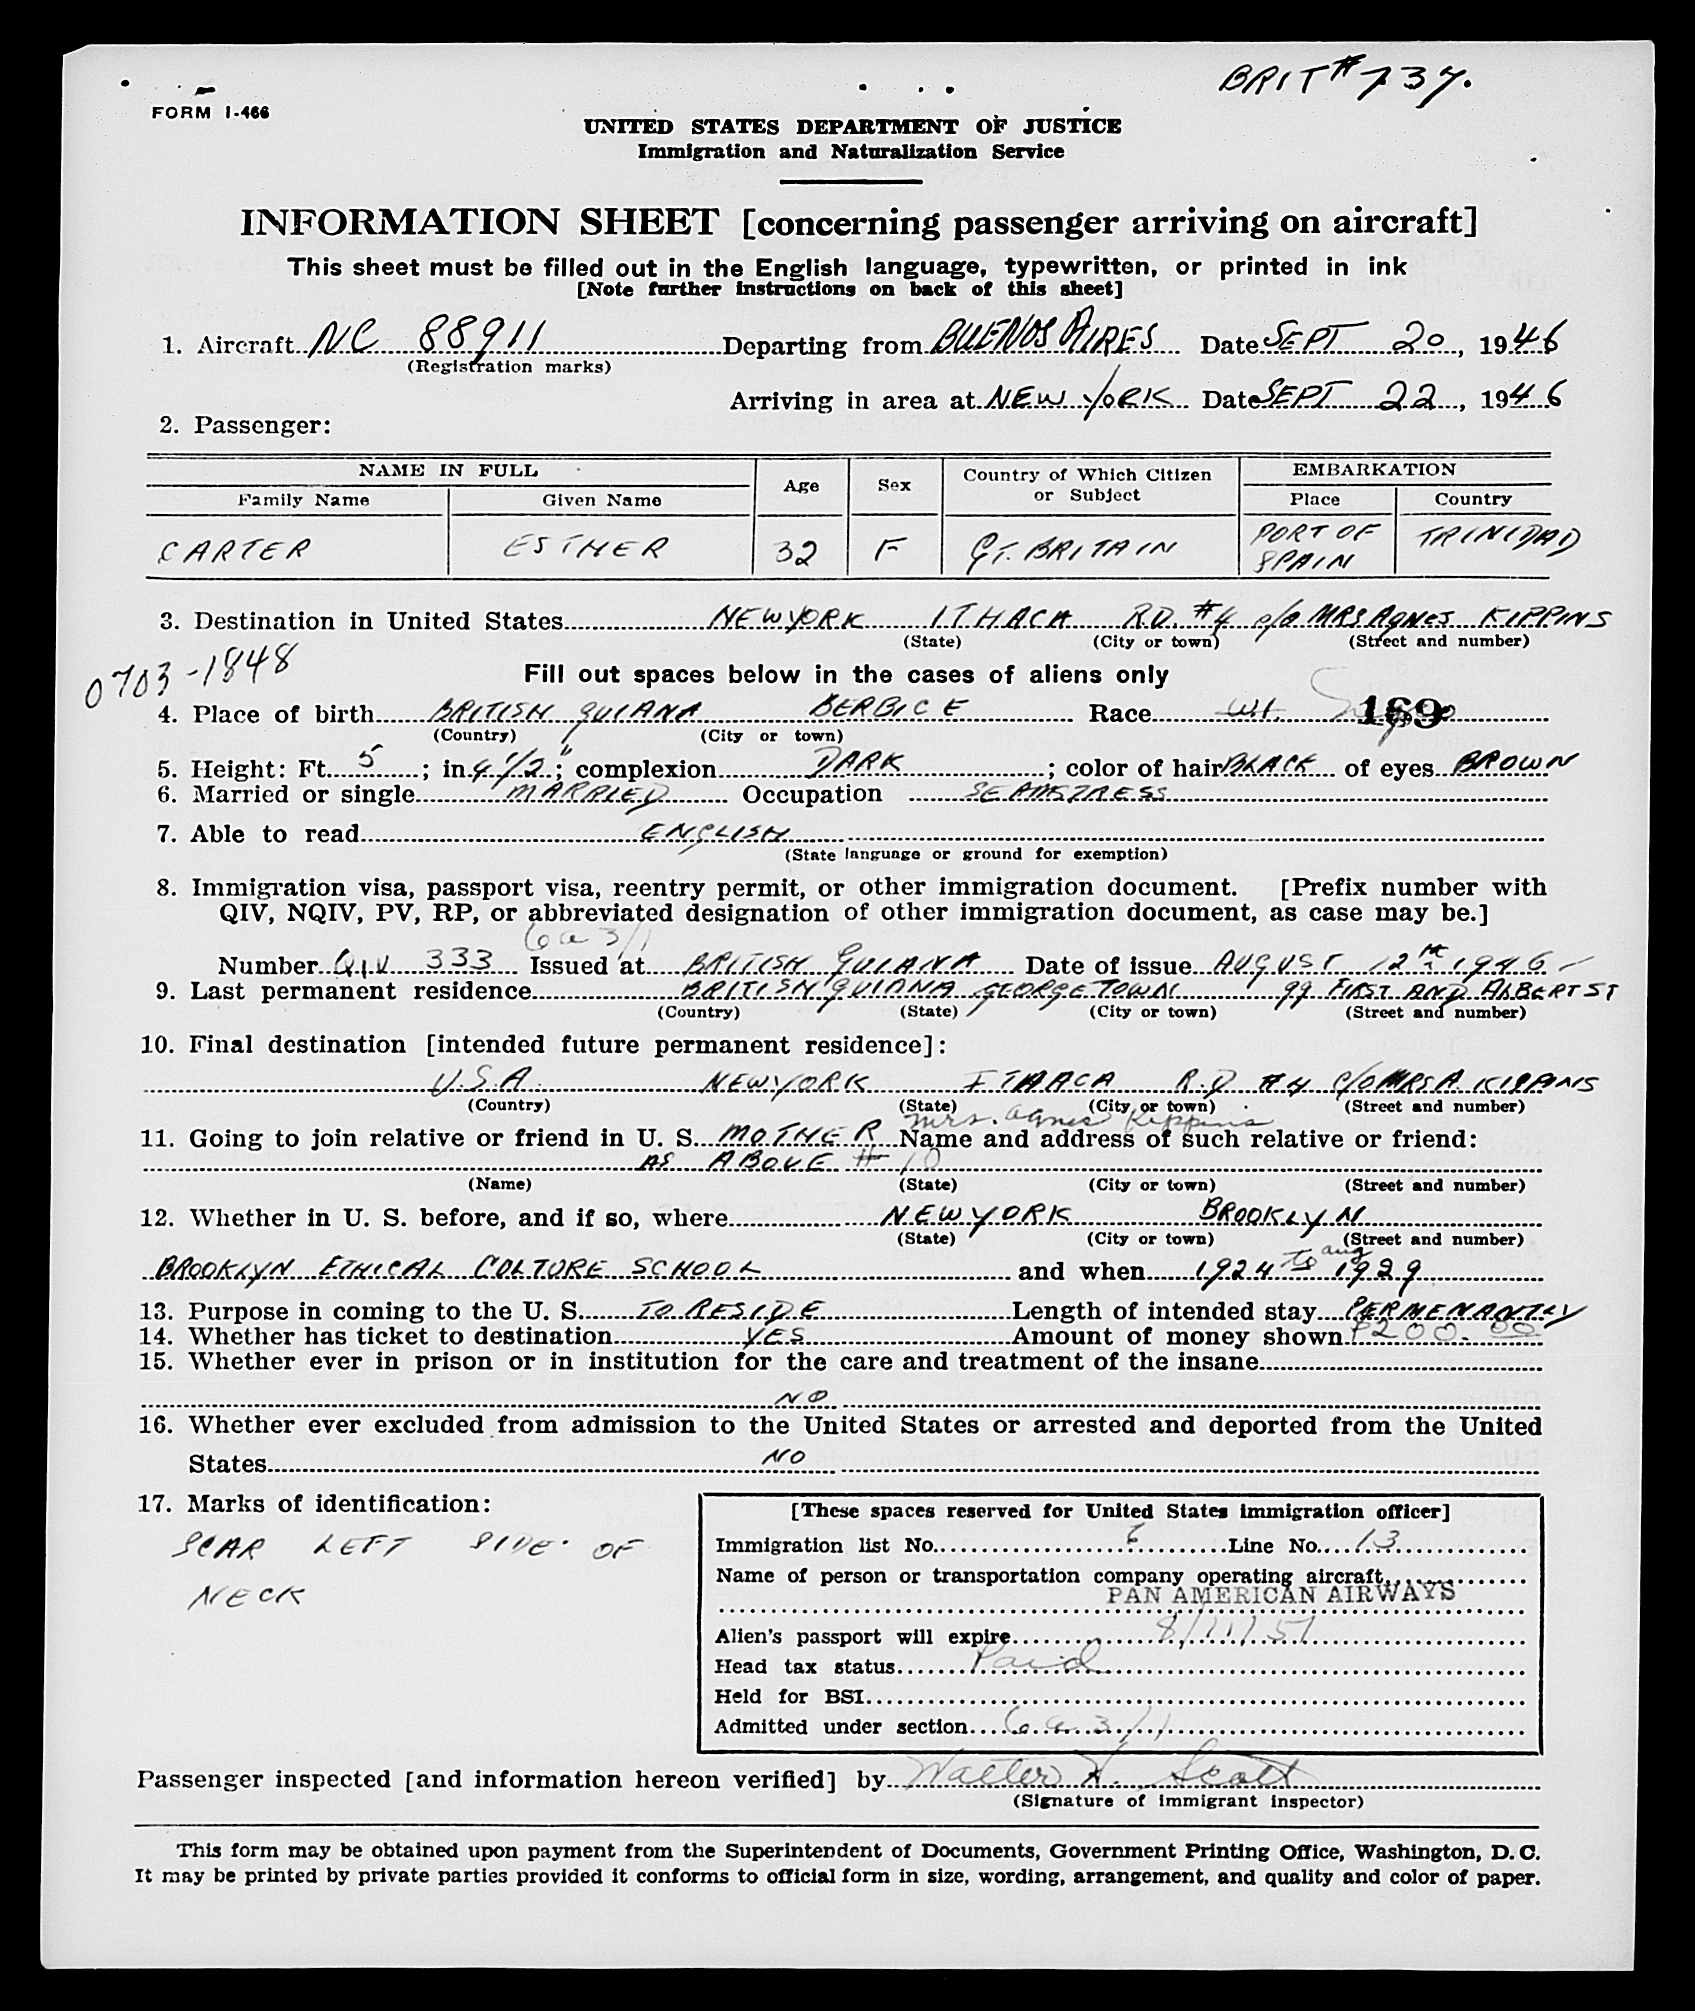 BRIT # 737.
FORM I-466
UNITED STATES DEPARTMENT OF JUSTICE
Immigration and Naturalization Service
INFORMATION SHEET [concerning passenger arriving on aircraft]
This sheet must be filled out in the English language, typewritten, or printed in ink
[Note further instructions on back of this sheet]
1. Aircraft NC 88911 Departing from BUENOS AIRES Date SEPT 20, 1946
(Registration marks)
Arriving in area at NEW YORK Date SEPT 22, 1946
2. Passenger:
NAME IN FULL Age Sex Country of Which Citizen or Subject EMBARKATION
Family Name Given Name Place Country
CARTER ESTHER 32 F GT. BRITAIN PORT OF SPAIN TRINIDAD
3. Destination in United States NEW YORK ITHACA R.D. #4 c/o MRS AGNES KIPPINS
(State) (City or town) (Street and number)
0703-1848
Fill out spaces below in the cases of aliens only
4. Place of birth BRITISH GUIANA BERBICE Race W.I. 169
(Country) (City or town)
5. Height: Ft. 5; in. 4 1/2"; complexion DARK; color of hair BLACK of eyes BROWN
6. Married or single MARRIED Occupation SEAMSTRESS
7. Able to read ENGLISH
(State language or ground for exemption)
8. Immigration visa, passport visa, reentry permit, or other immigration document. [Prefix number with
QIV, NQIV, PV, RP, or abbreviated designation of other immigration document, as case may be.]
6 a 3/1
Number QIV 333 Issued at BRITISH GUIANA Date of issue AUGUST 12th 1946
9. Last permanent residence BRITISH GUIANA GEORGETOWN 99 FIRST AND ALBERT ST
(Country) (State) (City or town) (Street and number)
10. Final destination [intended future permanent residence]:
U.S.A. NEW YORK ITHACA R.D #4 C/O MRS A. KIPPINS
(Country) (State) (City or town) (Street and number)
Mrs. Agnes Kippins
11. Going to join relative or friend in U. S. MOTHER Name and address of such relative or friend:
AS ABOVE # 10
(Name) (State) (City or town) (Street and number)
12. Whether in U. S. before, and if so, where NEW YORK BROOKLYN
(State) (City or town) (Street and number)
BROOKLYN ETHICAL CULTURE SCHOOL and when 1924 to aug 1929
13. Purpose in coming to the U. S. TO RESIDE Length of intended stay PERMENANTLY
14. Whether has ticket to destination YES Amount of money shown $200.00
15. Whether ever in prison or in institution for the care and treatment of the insane
NO
16. Whether ever excluded from admission to the United States or arrested and deported from the United
States NO
17. Marks of identification:
SCAR LEFT SIDE OF
NECK
[These spaces reserved for United States immigration officer]
Immigration list No. 6 Line No. 13
Name of person or transportation company operating aircraft
PAN AMERICAN AIRWAYS
Alien's passport will expire 8/11/51
Head tax status Paid
Held for BSI
Admitted under section 6 a 3/1
Passenger inspected [and information hereon verified] by Walter H. Scott
(Signature of immigrant inspector)
This form may be obtained upon payment from the Superintendent of Documents, Government Printing Office, Washington, D. C.
It may be printed by private parties provided it conforms to official form in size, wording, arrangement, and quality and color of paper.